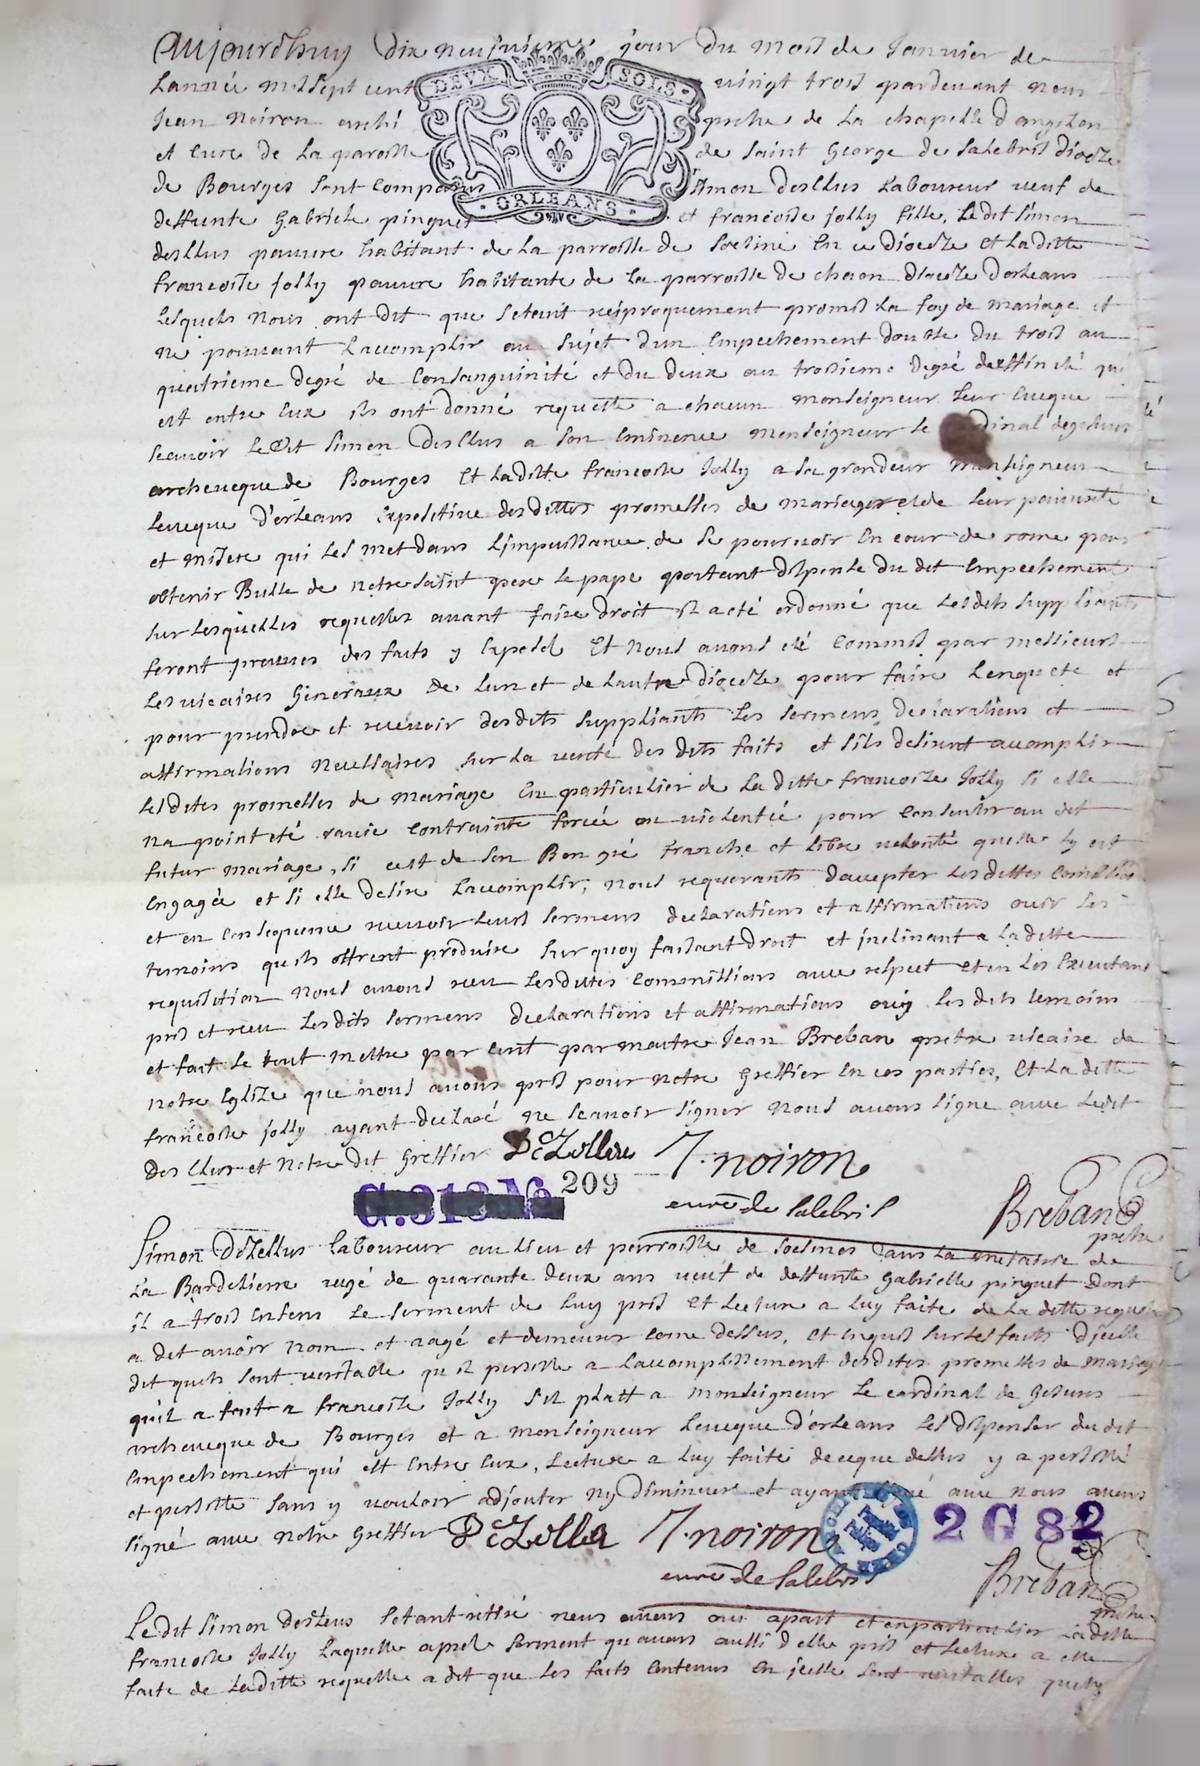 Aujourdhuy dix neufvieme jour du mois de Janvier de
Lannée mil sept cent vingt trois pardevant nous
DEVX SOLS
Jean Noiron archi prestre de La chapelle dangilon
et Curé de La paroisse de Saint George de Salebris dioceze
de Bourges sont comparus Simon deslus Laboureur veuf de
ORLEANS
deffunte Gabriele pinguet et francoise jolly fille, Ledit Simon
desllus pauvre habitant de La parroisse de Soesme En ce Dioceze et Laditte
francoise jolly pauvre habitante de La parroisse de chaon dioceze dorleans
Lesquels Nous ont dit que setant reciproquement promis La foy de mariage et
ne pouvant Laccomplir au sujet dun Empechement double du trois au
quatrieme degré de Consanguinité et du deux au troisieme degré daffinité qui
est entre Eux ils ont donné requeste a chacun monseigneur Leur Eveque
scavoir Ledit Simon desllus a son Eminence monseigneur Le Cardinal degesvres
archeveque de Bourges Et Laditte francoise Jolly a Sa grandeur monseigneur
Leveque d'orleans Expositive desdittes promesses de mariage et de Leur pauvreté
et misere qui Les met dans Limpuissance de se pourvoir En cour de rome pour
obtenir Bulle de notre saint pere Le pape portant dispense du dit Empechement
sur Lesquelles requestes avant faire droit il a eté ordonné que Lesdits suppliants
feront preuves des faits y Exposés Et nous avons eté Commis par messieurs
Les vicaires Generaux de Lun et de Lautre dioceze pour faire Lenquete et
pour prendre et recevoir desdits suppliants Les sermens declarations et
affirmations necessaires sur La verité des dits faits et sils desirent accomplir
Lesdites promesses de mariage En particulier de La ditte francoize Jolly si elle
na point eté ravie contrainte forcée ou violentée pour Consentir au dit
futur mariage, si cest de son Bon gré franche et libre volonté quelle sy est
Engagée et si elle desire Laccomplir; nous requerants daccepter Lesdittes Commissions
et en Consequence recevoir Leurs sermens declarations et affirmations ouir Les
temoins quils offrent produire surquoy faisant droit et jnclinant a Laditte
requisition nous avons receu Lesdites Commissions avec respect et en Les Executant
pris et receu Lesdits sermens declarations et affirmations ouy Les dits temoins
et fait Le tout mettre par ecrit par maitre Jean Breban pretre vicaire de
notre Eglize que nous avons pris pour notre Greffier En ces parties, Et La ditte
francoise jolly ayant declaré ne scavoir signer Nous avons signé avec Ledit
Des Llus et Notre dit Greffier DeZellus J. noiron
G.313 No 209
curé de Salebris Breban
pretre
Simon Dezellus Laboureur au lieu et parroisse de Soesmes dans La metairie de
La Bardeliere aagé de quarante deux ans veuf de deffunte Gabrielle pinguet dont
il a trois Enfens Le serment de Luy pris Et Lecture a Luy faite de La ditte requeste
a dit avoir nom et aagé et demeurer come dessus, et enquis sur Les faits d'jcelle
dit quils sont veritable qu il persiste a Laccomplissement desdites promesses de mariage
quil a fait a francoise Jolly sil plait a monseigneur Le cardinal de Gesvres
archeveque de Bourges et a monseigneur Leveque d'orleans Les dispenser du dit
Empechement qui est Entre Eux, Lecture a Luy faite de ceque dessus y a persisté
et persiste sans y vouloir adjouter ny diminuer et ayant signé avec nous avons
signé avec notre Greffier DeZella J. noiron
2 G 82
curé de Salebris Breban
pretre
Le dit Simon deszleus setant retiré nous avons oui apart et enparticulier Laditte
francoise Jolly Laquelle apres serment quavons aussi d'elle pris et Lecture a elle
faite de Laditte requeste a dit que Les faits Contenus En jcelle sont veritables quelle